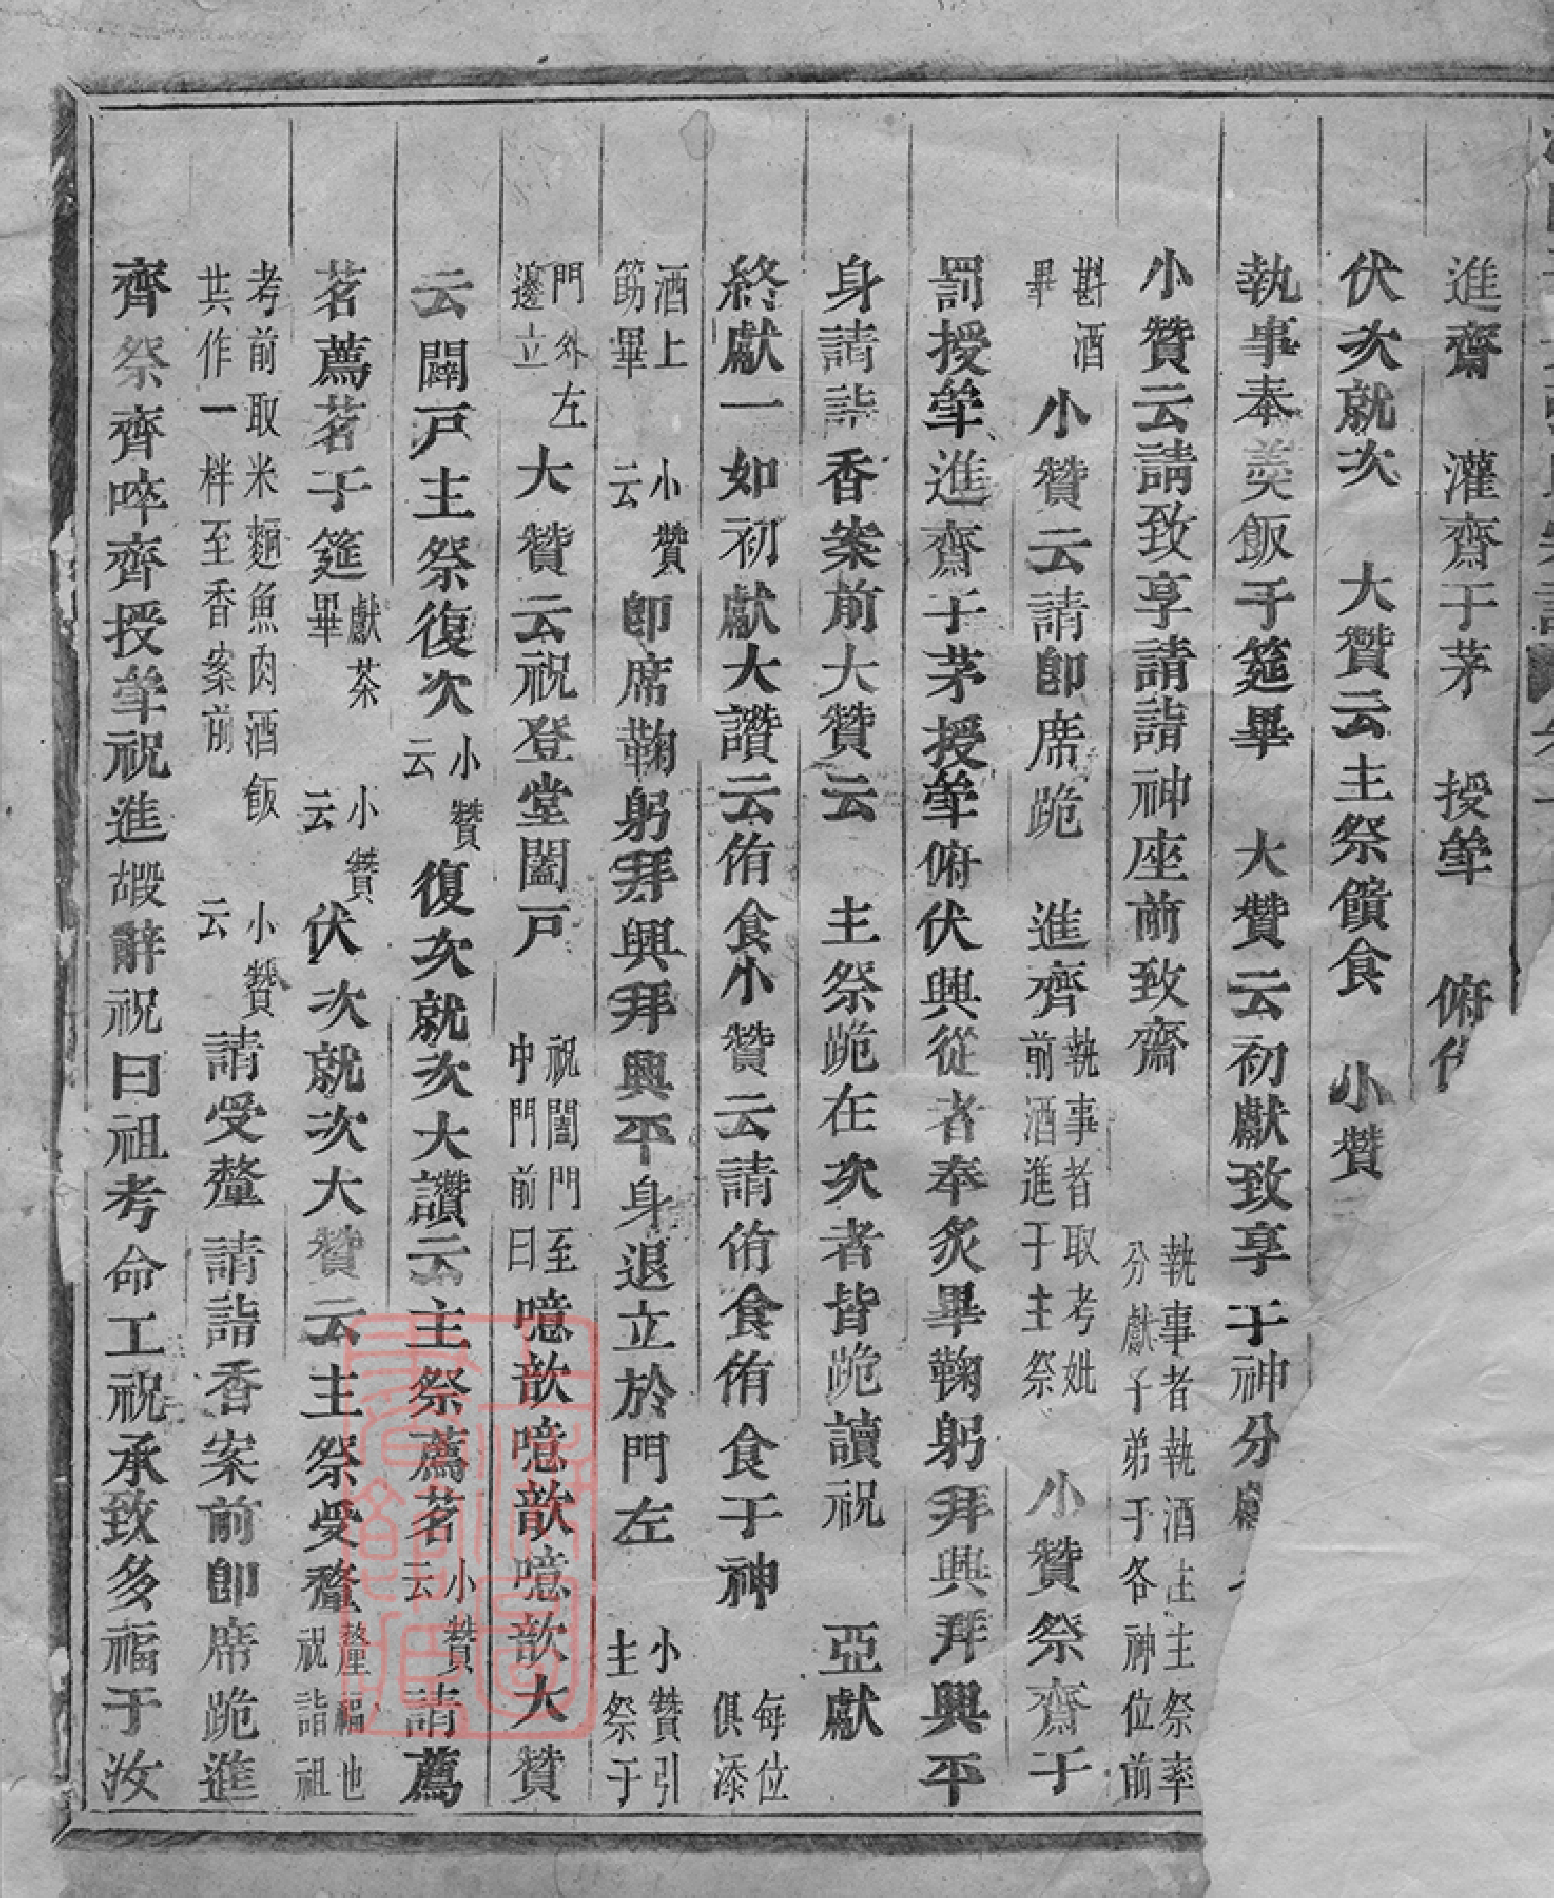 進齋　灌齋于茅　授斝　俯伏
伏次就次　大贊云主祭饋食　小贊
執事奉羮飯于筵畢　大贊云初獻致享于神分獻
小贊云請致享請詣神座前致齋　執事者執酒主主祭率分獻子弟于各神位前
斟酒畢　小贊云請卽席跪　進齊執事者取考妣前酒進于主祭　小贊祭齋于
罰授斝進齋于茅授斝俯伏興從者奉炙畢鞠躬拜興拜興平
身請詣香案前大贊云　主祭跪在次者皆跪讀祝　亞獻
終獻一如初獻大讚云侑食小贊云請侑食侑食于神　每位俱添
酒上筯畢　小贊云卽席鞠躬拜興拜興平身退立於門左　小贊引主祭于
門外左邊立　大贊云祝登堂闔戸　祝闔門至中門前曰噫歆噫歆噫歆大贊
云闢戸主祭復次小贊云復次就次大讚云主祭薦茗小贊云請薦
茗薦茗于筵獻茶畢　小贊云伏次就次大贊云主祭受釐釐福也祝詣祖
考前取米麵魚肉酒飯共作一柈至香案前　小贊云請受釐請詣香案前卽席跪進
齊祭齊啐齊授斝祝進嘏辭祝曰祖考命工祝承致多福于汝